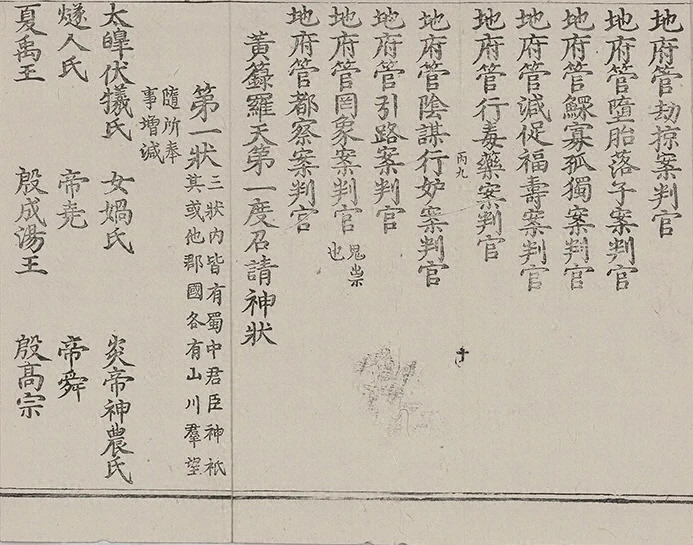 地府管劫掠案判官
地府管墮胎落子案判官
地府管鰥寡孤獨案判官
地府管減促福壽案判官
地府管行毒藥案判官
丙九
十
地府管陰謀行妒案判官
地府管引路案判官
地府管罔象案判官鬼祟也
地府管都察案判官
黃籙羅天第一度召請神狀
第一狀三狀內皆有蜀中君臣神祇
其或他郡國各有山川羣望
隨所奉
事增減
太皥伏犧氏 女媧氏 炎帝神農氏
燧人氏 帝堯 帝舜
夏禹王 殷成湯王 殷髙宗